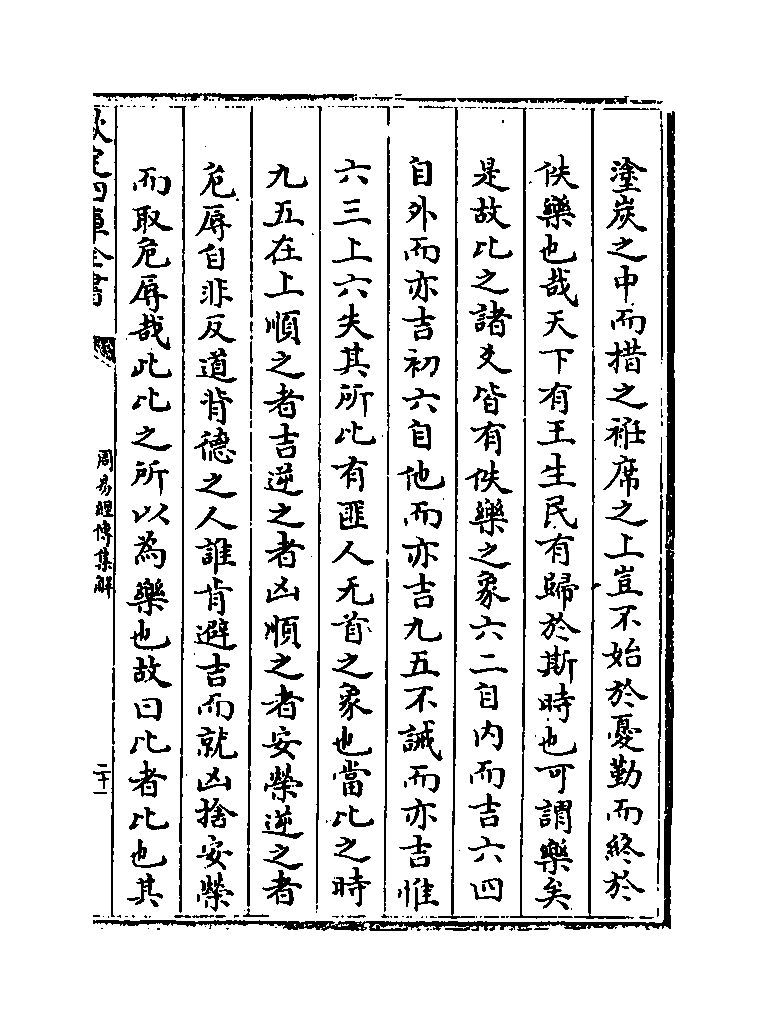 塗炭之中而措之袵席之上豈不始於憂勤而終於
佚樂也哉天下有王生民有歸於斯時也可謂樂矣
是故比之諸爻皆有佚樂之象六二自内而吉六四
自外而亦吉初六自他而亦吉九五不誡而亦吉惟
六三上六失其所比有匪人无首之象也當比之時
九五在上順之者吉逆之者凶順之者安榮逆之者
危辱自非反道背德之人誰肯避吉而就凶捨安榮
而取危辱哉此比之所以為樂也故曰比者比也其
欽定四庫全書
周易經傳集解
二十一